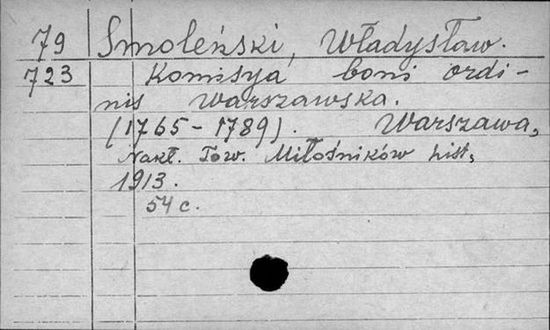 79 Smoleński, Władysław.
723 Komisya boni ordi-
nis Warszawska.
(1765-1789). Warszawa,
Nakł. Tow. Miłośników hist,
1913.
54 c.